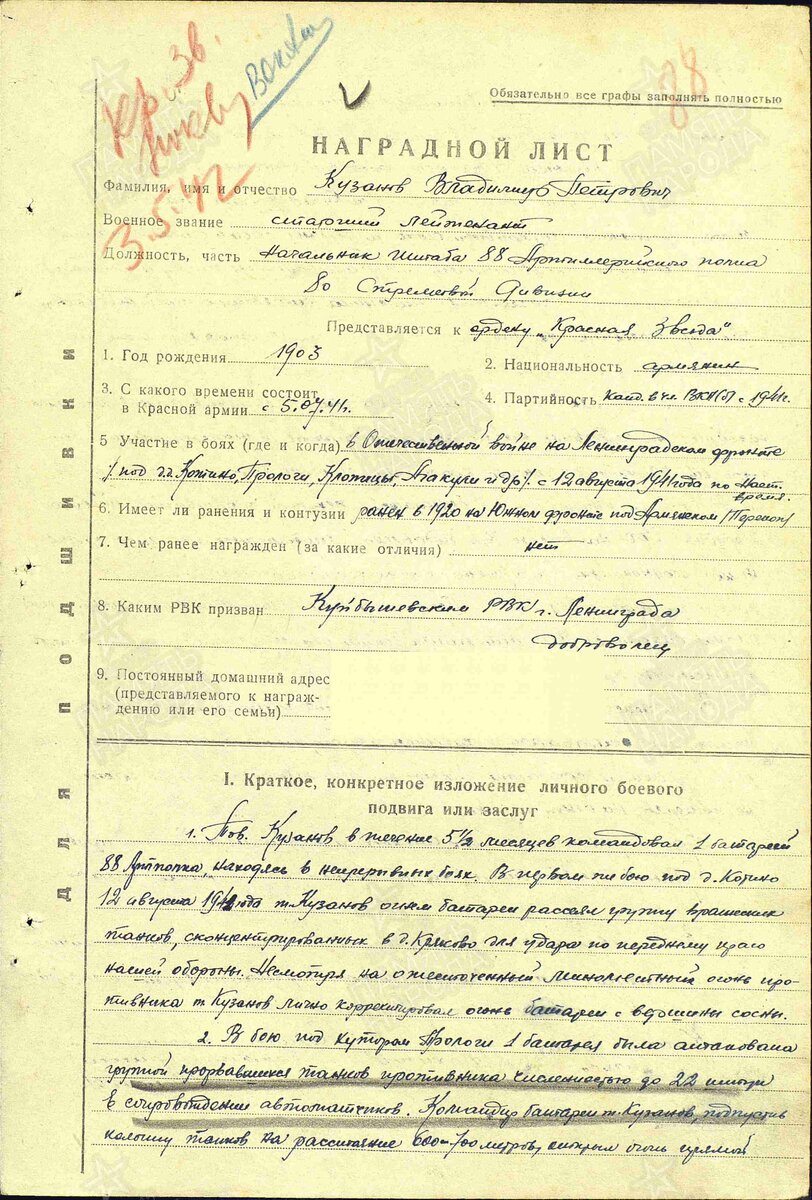 Кр. Зв.
3.5.42
88
Обязательно все графы заполнять полностью
НАГРАДНОЙ ЛИСТ
Фамилия, имя и отчество Кузанов Владимир Петрович
Военное звание старший лейтенант
Должность, часть Начальник штаба 88 Артиллерийского полка
80 Стрелковой Дивизии
Представляется к ордену „Красная Звезда"
1. Год рождения 1903
2. Национальность армянин
3. С какого времени состоит
в Красной армии с 5.07.41г.
4. Партийность канд. в чл. ВКП(б) с 1941г.
5 Участие в боях (где и когда) в Отечественной войне на Ленинградском фронте
/под д.д. Котино, Прологи, Клопицы, и др/. с 12 августа 1941 года по наст.
время.
6. Имеет ли ранения и контузии ранен в 1920 на Южном фронте под Армянском /Перекоп/
7. Чем ранее награжден (за какие отличия) нет
8. Каким РВК призван Куйбышевским РВК г. Ленинграда
доброволец
9. Постоянный домашний адрес
(представляемого к награж-
дению или его семьи)
ДЛЯ ПОДШИВКИ
I. Краткое, конкретное изложение личного боевого
подвига или заслуг
1. Тов. Кузанов в течение 5 1/2 месяцев командовал 1 батареей
88 Артполка, находясь в непрерывных боях. В первом же бою под д. Котино
12 августа 1941 года т. Кузанов огнем батареи рассеял группу вражеских
танков, сконцентрированных в д. Кряково для удара по переднему краю
нашей обороны. Несмотря на ожесточенный минометный огонь про-
тивника т. Кузанов лично корректировал огонь батареи с вершины сосны.
2. В бою под хутором Прологи 1 батарея была атакована
группой прорвавшихся танков противника численностью до 22 штук
в сопровождении автоматчиков. Командир батареи т. Кузанов, подпустив
колонну танков на расстояние 600-700 метров, открыл огонь прямой